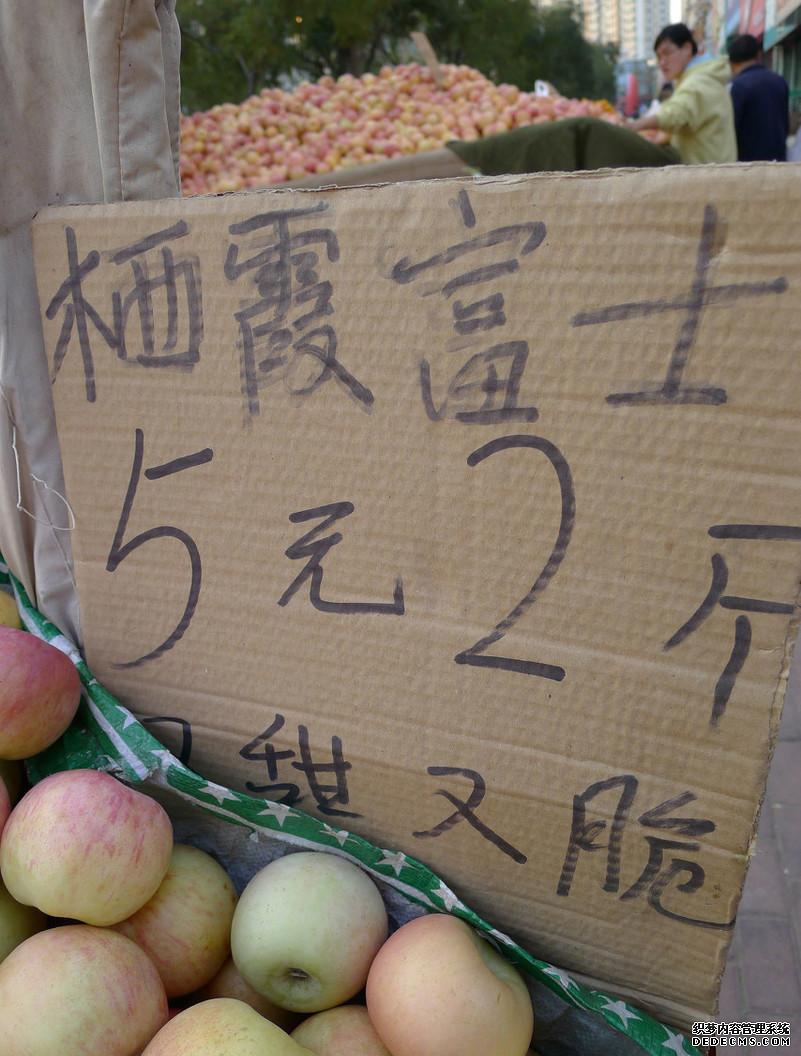 栖霞富士
5元2斤
又甜又脆
织梦内容管理系统
DEDECMS.COM